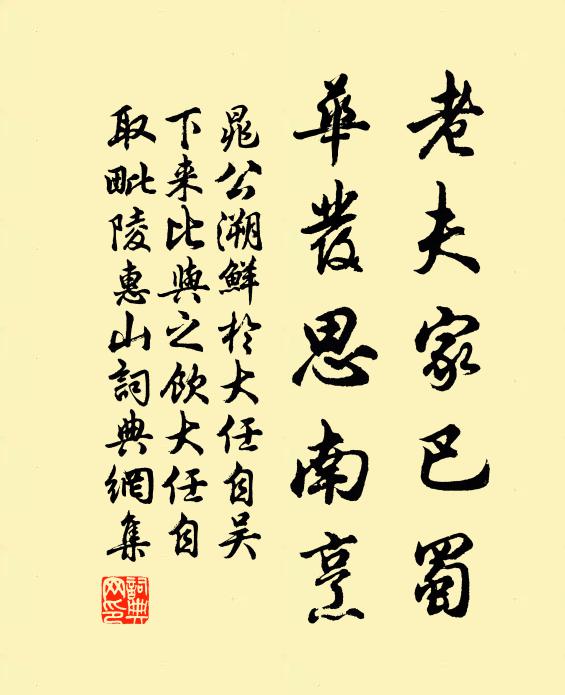 老夫家巴蜀
華發思南烹
晁公溯鮮於大任自吳
下来比與之飲大任自
取毗陵惠山詞典網集
詞典网印